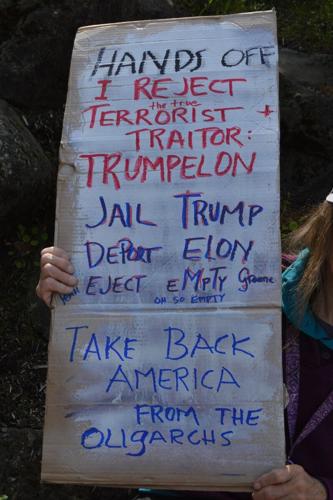 HANDS OFF
I REJECT
the true
TERRORIST +
TRAITOR:
TRUMPELON
JAIL TRUMP
DEPORT ELON
Yeah EJECT EMPTY Greene
OH SO EMPTY
TAKE BACK
AMERICA
FROM THE
OLIGARCHS